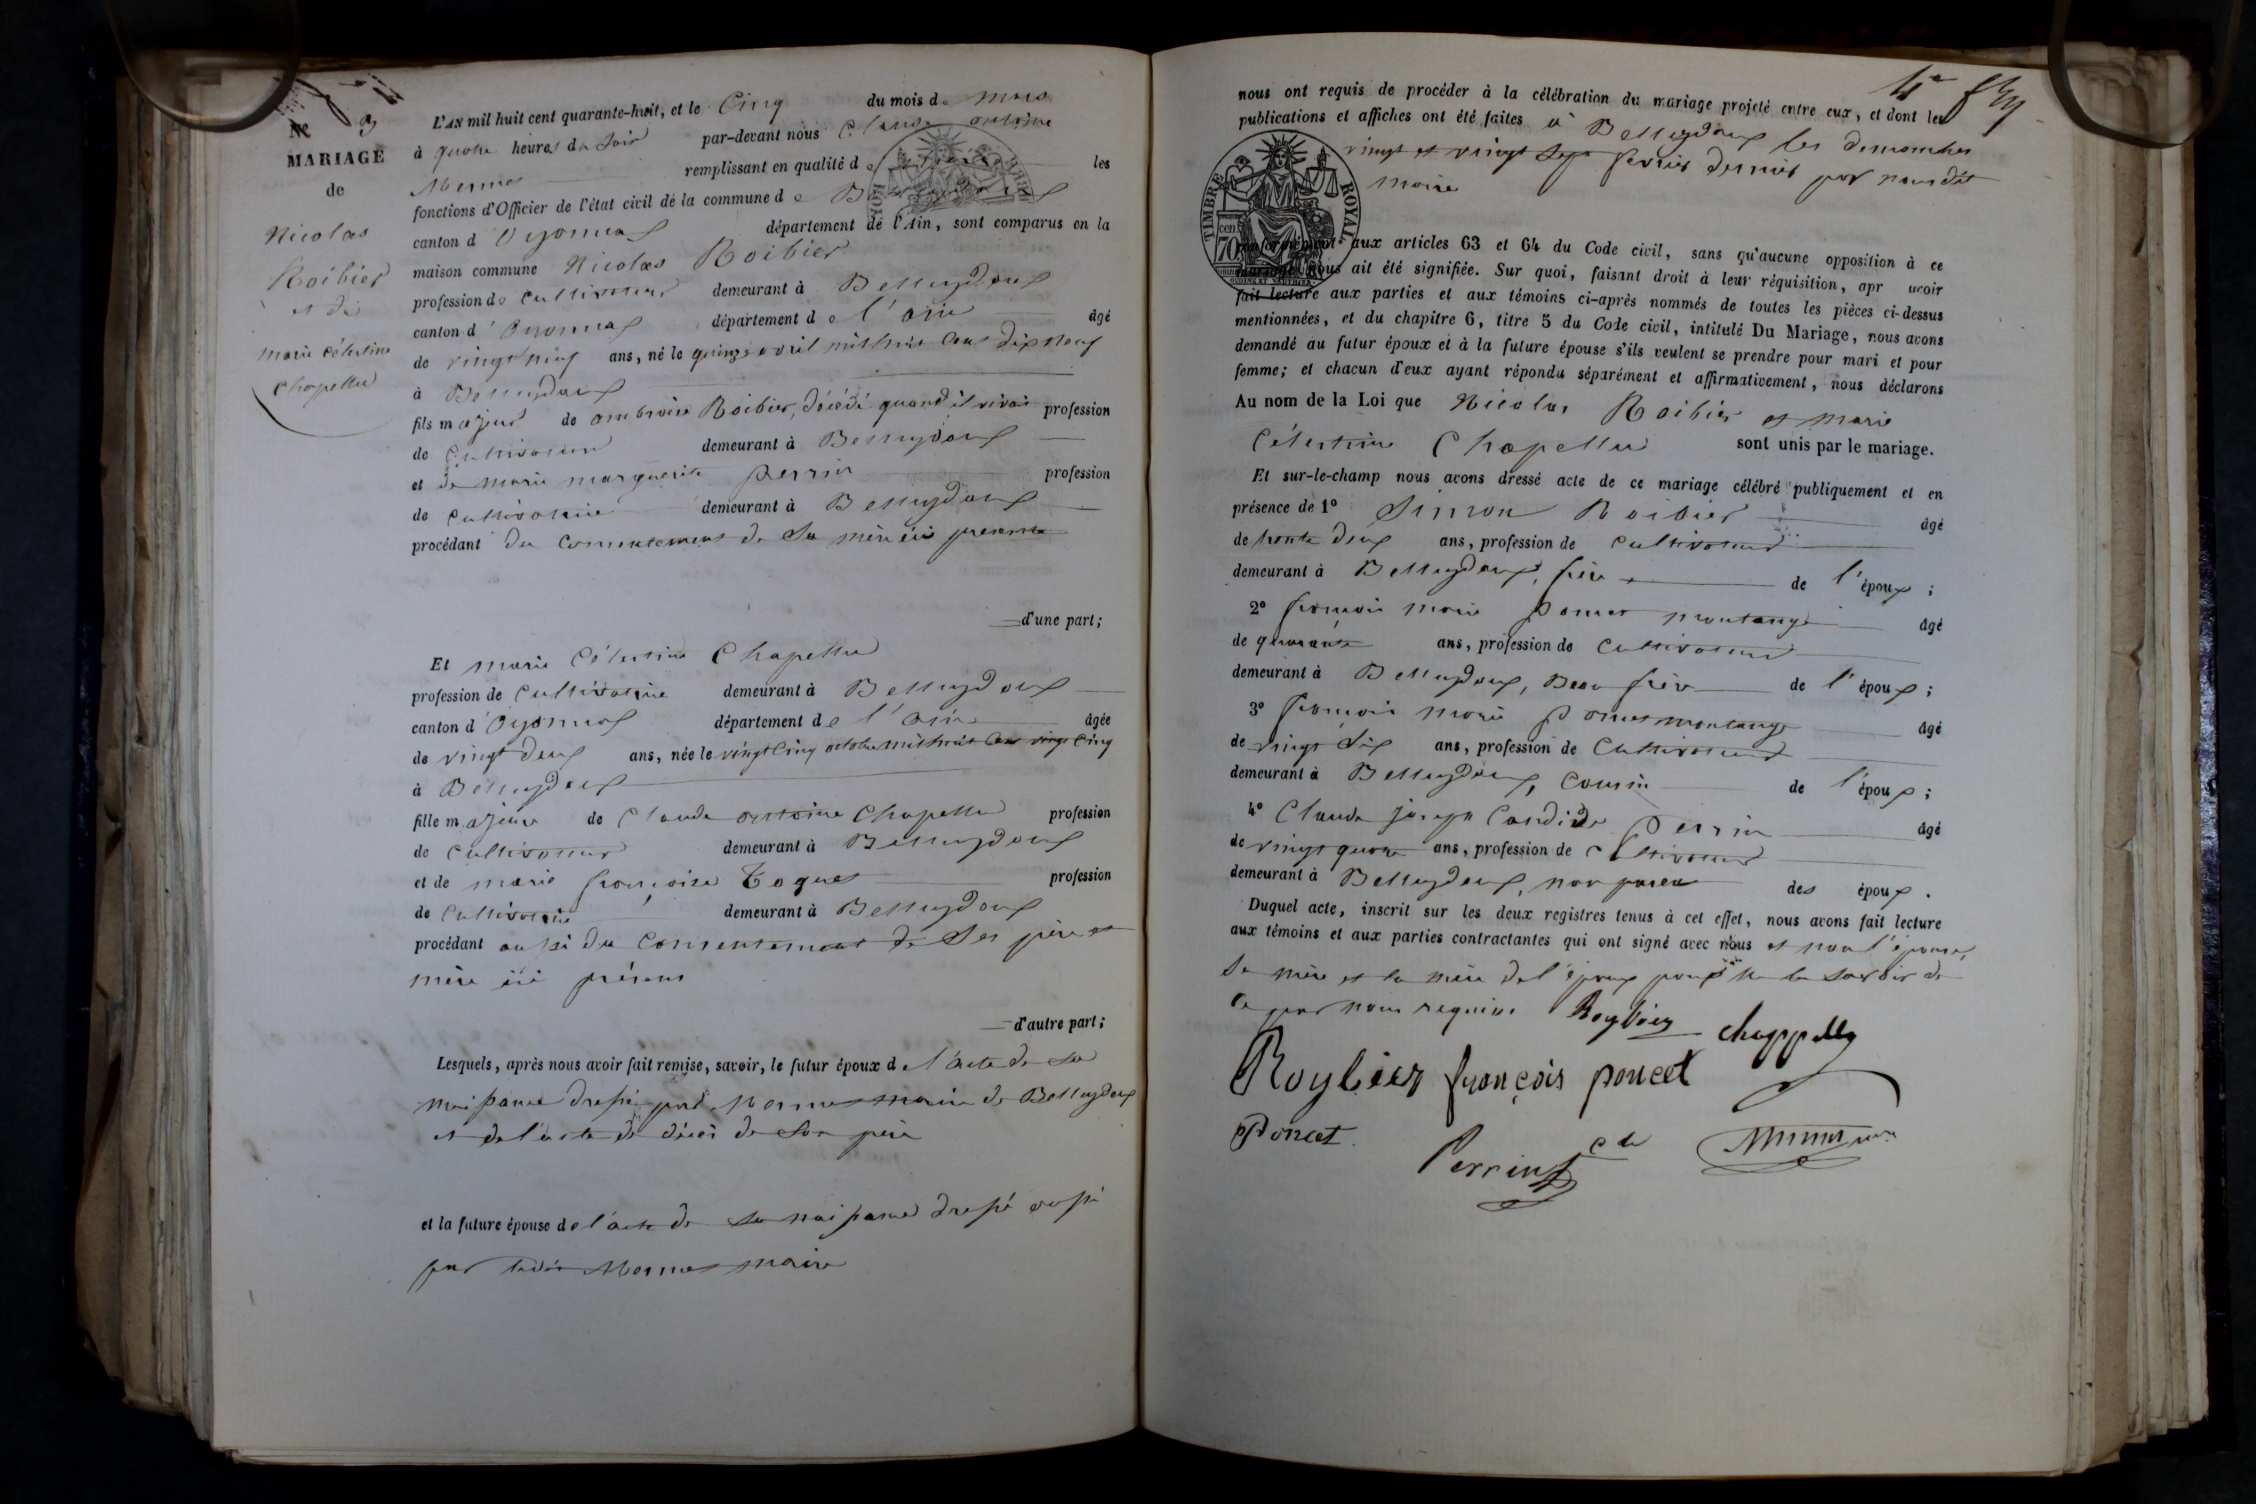 N° 3
MARIAGE
de
Nicolas
Roibier
et de
marie Célestine
Chapellu
L'AN mil huit cent quarante-huit, et le Cinq du mois de mars
à quatre heures du Soir par-devant nous Claude antoine
Mermet remplissant en qualité de les
fonctions d'Officier de l'état civil de la commune de Belleydoux
canton d'Oyonnax département de l'Ain, sont comparus en la
maison commune Nicolas Roibier
profession de Cultivateur demeurant à Belleydoux
canton d'Oyonnax département de l'ain âgé
de vingt neuf ans, né le quinze avril mil huit Cent dix neuf
à Belleydoux
fils majeur de ambroise Roibier, décédé quand il vivait profession
de Cultivateur demeurant à Belleydoux
et de marie marguerite perrin profession
de Cultivatrice demeurant à Belleydoux
procédant du Consentement de Sa mère ici présente
d'une part;
Et marie Célestine Chapellu
profession de Cultivatrice demeurant à Belleydoux
canton d'Oyonnax département de l'ain âgée
de vingt deux ans, née le vingt Cinq octobre mil huit Cent vingt Cinq
à Belleydoux
fille majeure de Claude antoine Chapellu profession
de Cultivateur demeurant à Belleydoux
et de marie françoise profession
de Cultivatrice demeurant à Belleydoux
procédant aussi du Consentement de Ses père et
mère ici présens
d'autre part;
Lesquels, après nous avoir fait remise, savoir, le futur époux de l'acte de sa
naissance dressé par Mermet maire de Belleydoux
et de l'acte de décès de Son père
et la future épouse de l'acte de sa naissance dressé aussi
par ledit Mermet maire
nous ont requis de procéder à la célébration du mariage projeté entre eux, et dont les
publications et affiches ont été faites à Belleydoux les dimanches
vingt et vingt Sept février dernier par nous dit
maire
TIMBRE ROYAL
70
conformément aux articles 63 et 64 du Code civil, sans qu'aucune opposition à ce
mariage nous ait été signifiée. Sur quoi, faisant droit à leur réquisition, apr avoir
fait lecture aux parties et aux témoins ci-après nommés de toutes les pièces ci-dessus
mentionnées, et du chapitre 6, titre 5 du Code civil, intitulé Du Mariage, nous avons
demandé au futur époux et à la future épouse s'ils veulent se prendre pour mari et pour
femme; et chacun d'eux ayant répondu séparément et affirmativement, nous déclarons
Au nom de la Loi que Nicolas Roibier et marie
Célestine Chapellu sont unis par le mariage.
Et sur-le-champ nous avons dressé acte de ce mariage célébré publiquement et en
présence de 1° Simon Roibier âgé
de trente deux ans, profession de Cultivateur
demeurant à Belleydoux, frère de l'époux;
2° françois marie poncet montange âgé
de quarante ans, profession de Cultivateur
demeurant à Belleydoux, Beau frère de l'époux;
3° françois marie poncet montange âgé
de vingt Six ans, profession de Cultivateur
demeurant à Belleydoux, Cousin de l'époux;
4° Claude joseph Candide Perrin âgé
de vingt quatre ans, profession de Cultivateur
demeurant à Belleydoux, non parent des époux.
Duquel acte, inscrit sur les deux registres tenus à cet effet, nous avons fait lecture
aux témoins et aux parties contractantes qui ont signé avec nous et non l'épouse,
Sa mère et la mère de l'époux pour ne le Savoir de
Ce par nous requises Roybier chappellu
Roybier françois poncet
Poncet Perrin Mermet